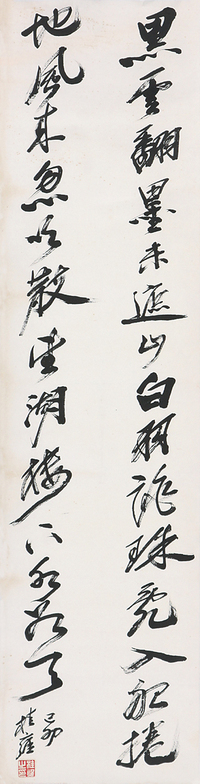 黑雲翻墨未遮山白雨跳珠亂入船捲
地風來忽吹散望湖樓下水如天
己卯